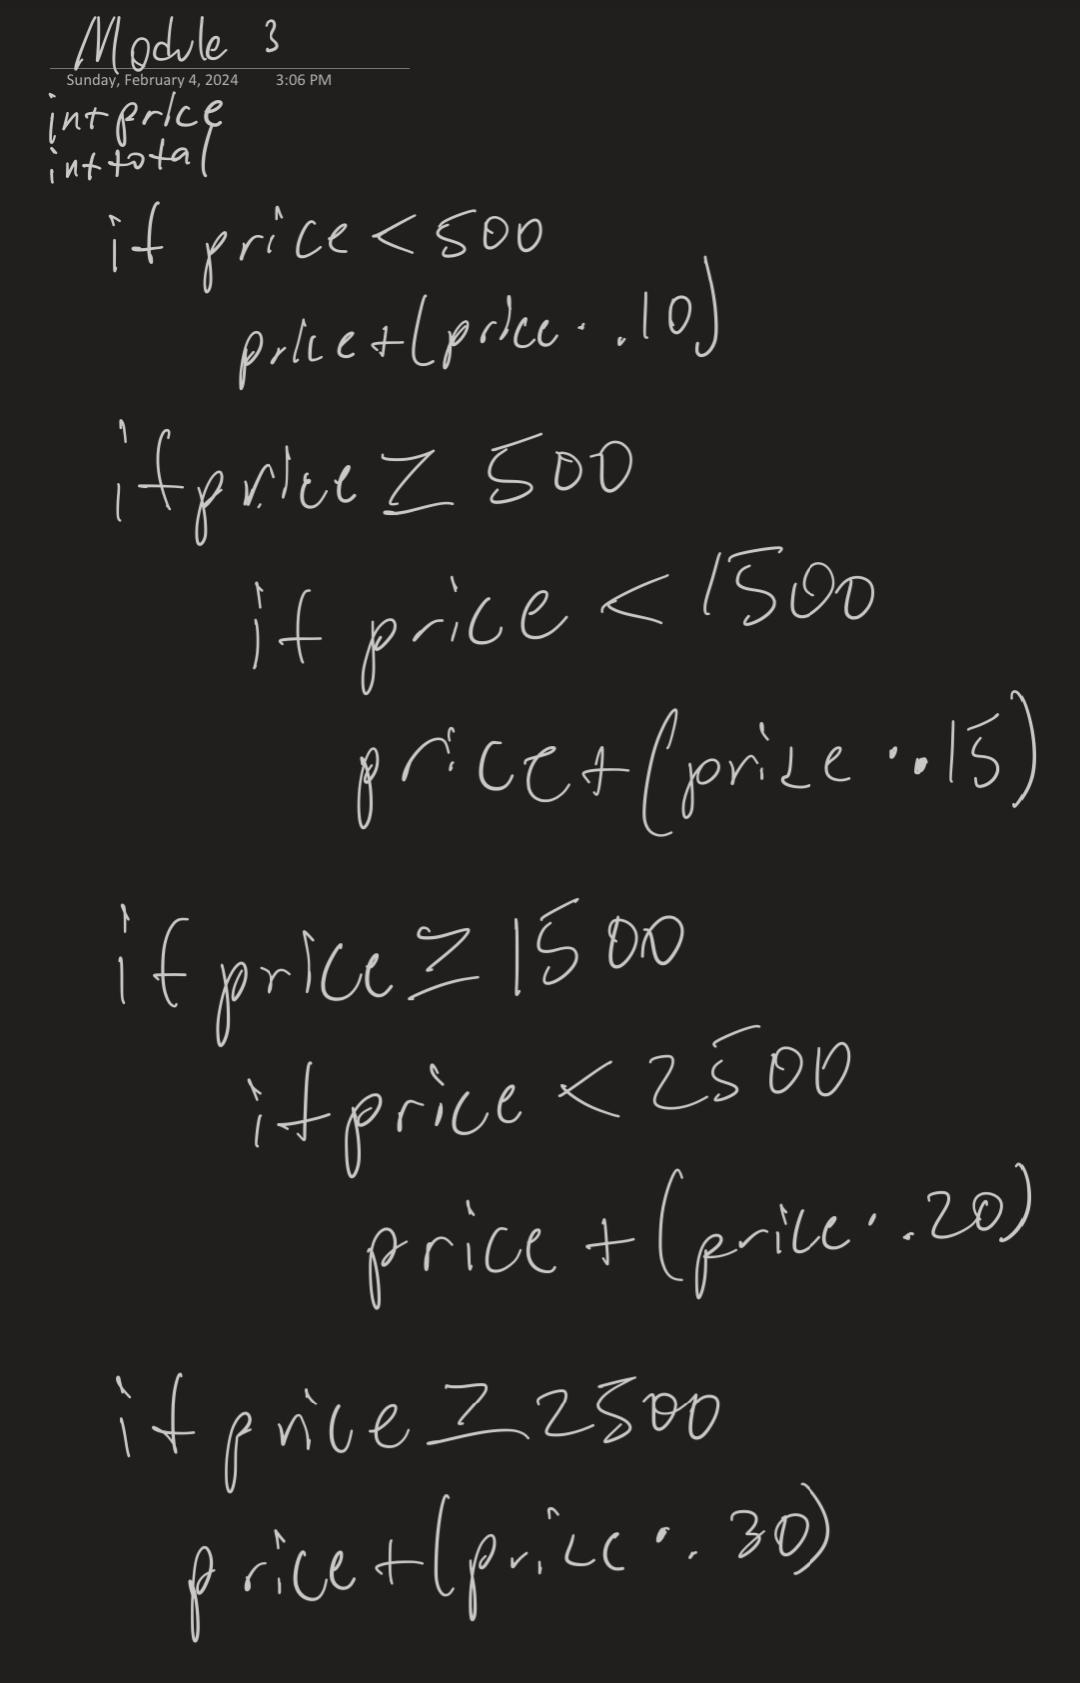 Module 3
Sunday, February 4, 2024 3:06 PM
int price
int total
if price < 500
price + (price · .10)
if price ≥ 500
if price < 1500
price + (price · .15)
if price ≥ 1500
if price < 2500
price + (price · .20)
if price ≥ 2500
price + (price · .30)